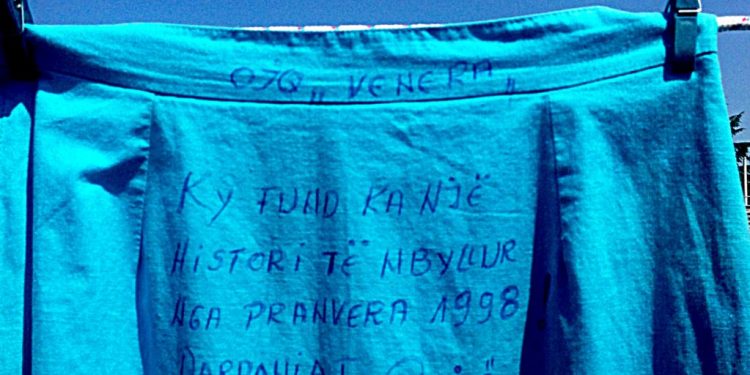 OJQ „VENERA„
KY FUND KA NJË
HISTORI TË MBYLLUR
NGA PRANVERA 1998!